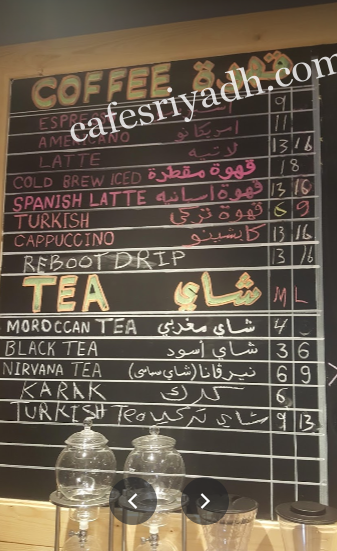 COFFEE قهوة
cafesriyadh.com
ESPRESSO 9
AMERICANO امريكانو 11
LATTE لاتيه 13 16
COLD BREW ICED قهوة مقطرة 18
SPANISH LATTE قهوة اسبانيه 13 16
TURKISH قهوة تركي 6 9
CAPPUCCINO كابتشينو 13 16
REBOOT DRIP 13 16
TEA شاي M L
MOROCCAN TEA شاي مغربي 4
BLACK TEA شاي أسود 3 6
NIRVANA TEA نيرفانا (شاي سامي) 6 9
KARAK كرك 6
TURKISH Tea شاي تركيه 9 13